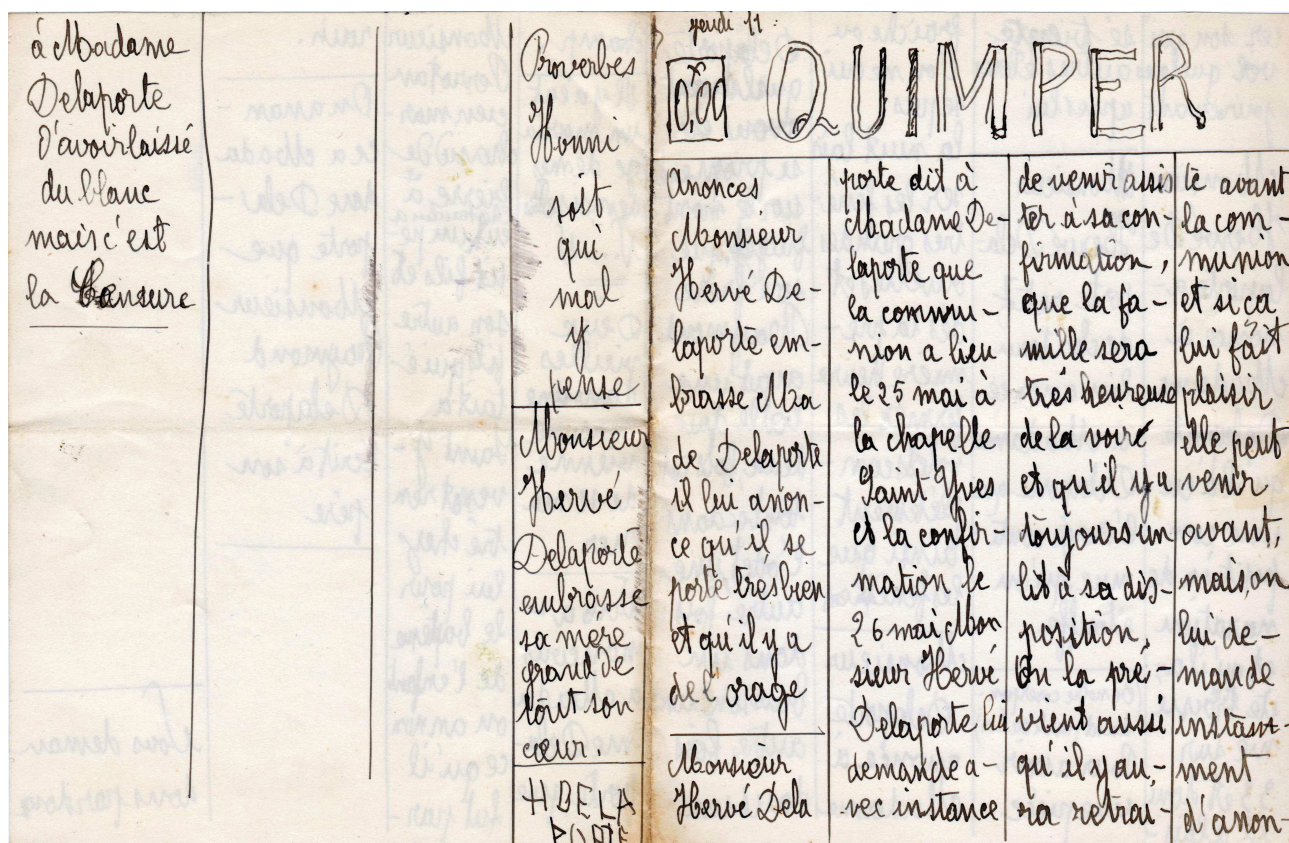 à Madame
Delaporte
d'avoir laissé
du blanc
mais c'est
la Censure
Proverbes
Honni
soit
qui
mal
y
pense
Monsieur
Hervé
Delaporte
embrasse
sa mère
grand de
tout son
cœur.
H.DELA
PORTE
jeudi 11.
QUIMPER
Anonces
Monsieur
Hervé De-
laporte em-
brasse Ma
de Delaporte
il lui anon-
ce qu'il se
porte très bien
et qu'il y a
de l'orage
Monsieur
Hervé Dela
porte dit à
Madame De-
laporte que
la commu-
nion a lieu
le 25 mai à
la chapelle
Saint Yves
et la confir-
mation le
26 mai Mon
sieur Hervé
Delaporte lui
demande a-
vec instance
de venir assis
ter à sa con-
firmation,
que la fa-
mille sera
très heureuse
de la voir
et qu'il y a
toujours un
lit à sa dis-
position.
On la pré-
vient aussi
qu'il y au-
ra retrai-
te avant
la com-
munion
et si ca
lui fait
plaisir
elle peut
venir
avant,
mais, on
lui de-
mande
instast-
ment
d'anon-